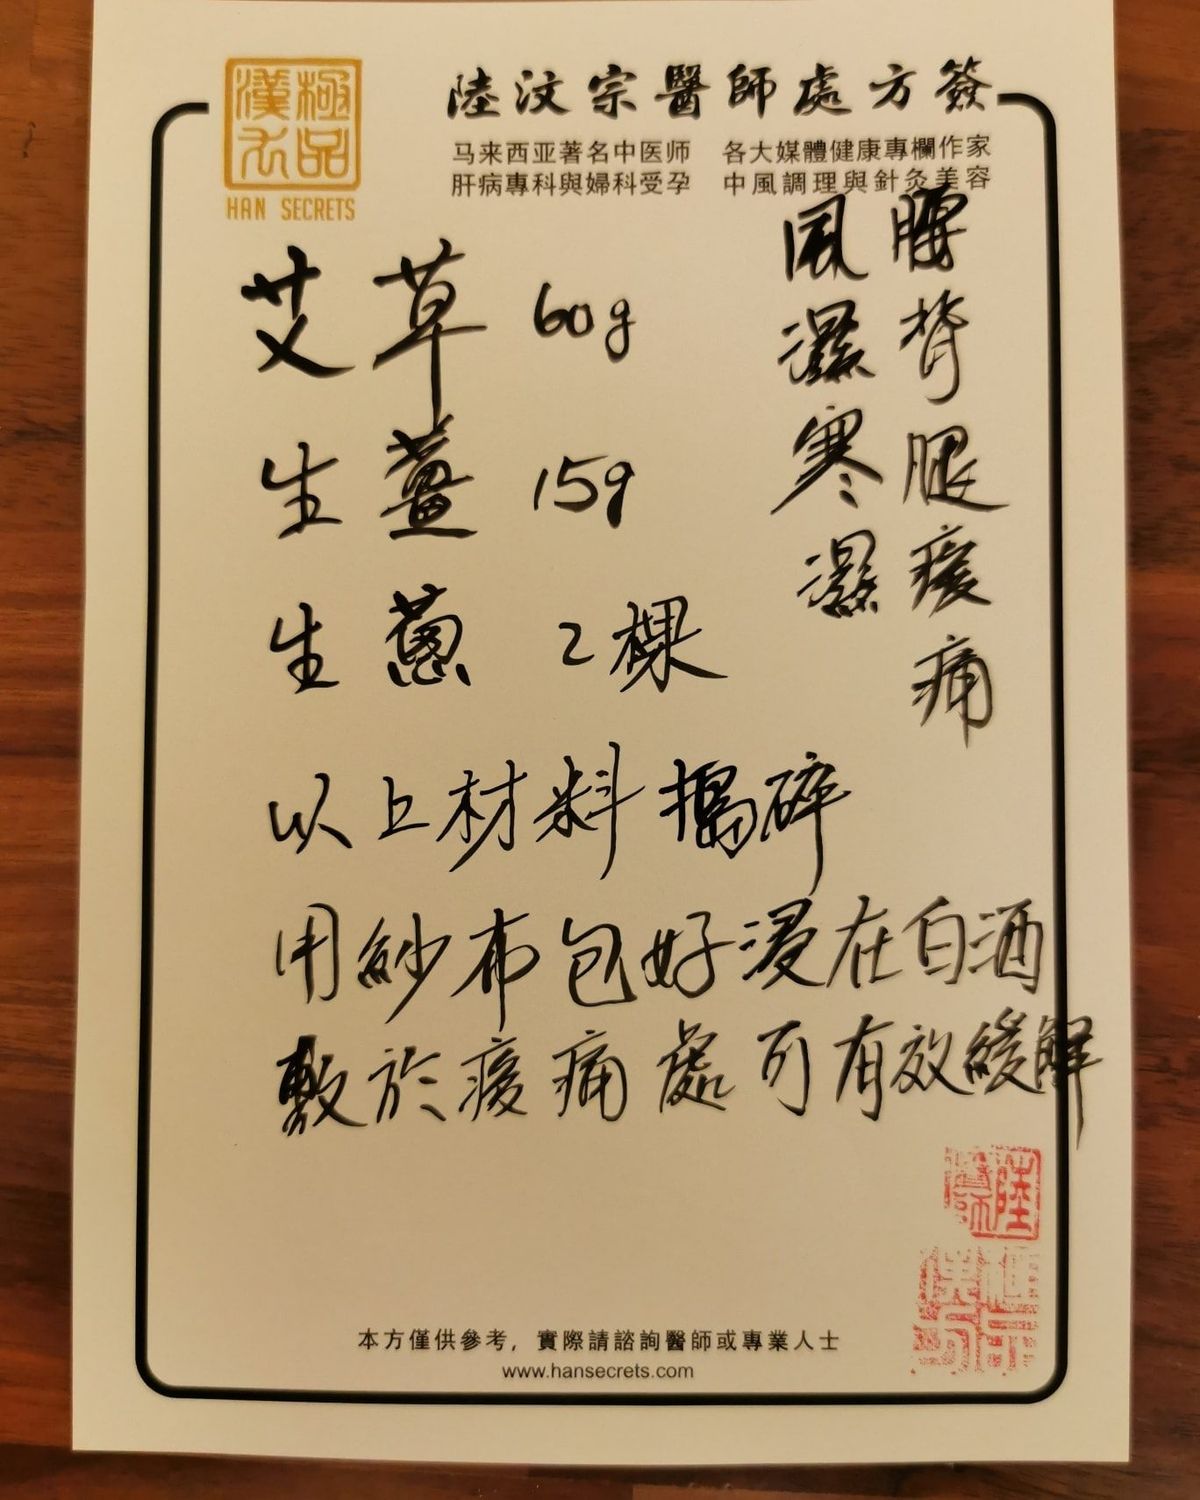 極品
漢方
HAN SECRETS
陸汶宗醫師處方簽
马来西亚著名中医师 各大媒體健康專欄作家
肝病專科與婦科受孕 中風調理與針灸美容
腰背腿痠痛
風濕寒濕
艾草 60g
生薑 15g
生蔥 2棵
以上材料搗碎
用紗布包好浸在白酒
敷於痠痛處可有效緩解
本方僅供參考，實際請諮詢醫師或專業人士
www.hansecrets.com